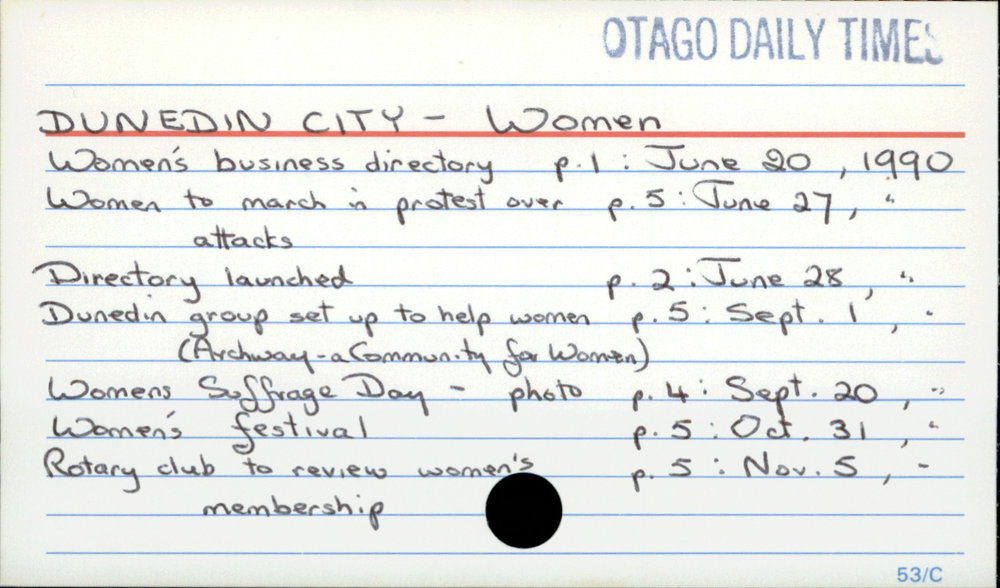 OTAGO DAILY TIMES
DUNEDIN CITY - Women
Women's business directory p.1 : June 20 , 1990
Women to march in protest over p. 5 : June 27 , "
attacks
Directory launched p. 2 : June 28 , "
Dunedin group set up to help women p. 5 : Sept. 1 , "
(Archway - a Community for Women)
Womens Suffrage Day - photo p. 4 : Sept. 20 , "
Women's festival p. 5 : Oct. 31 , "
Rotary club to review women's p. 5 : Nov. 5 , "
membership
53/C